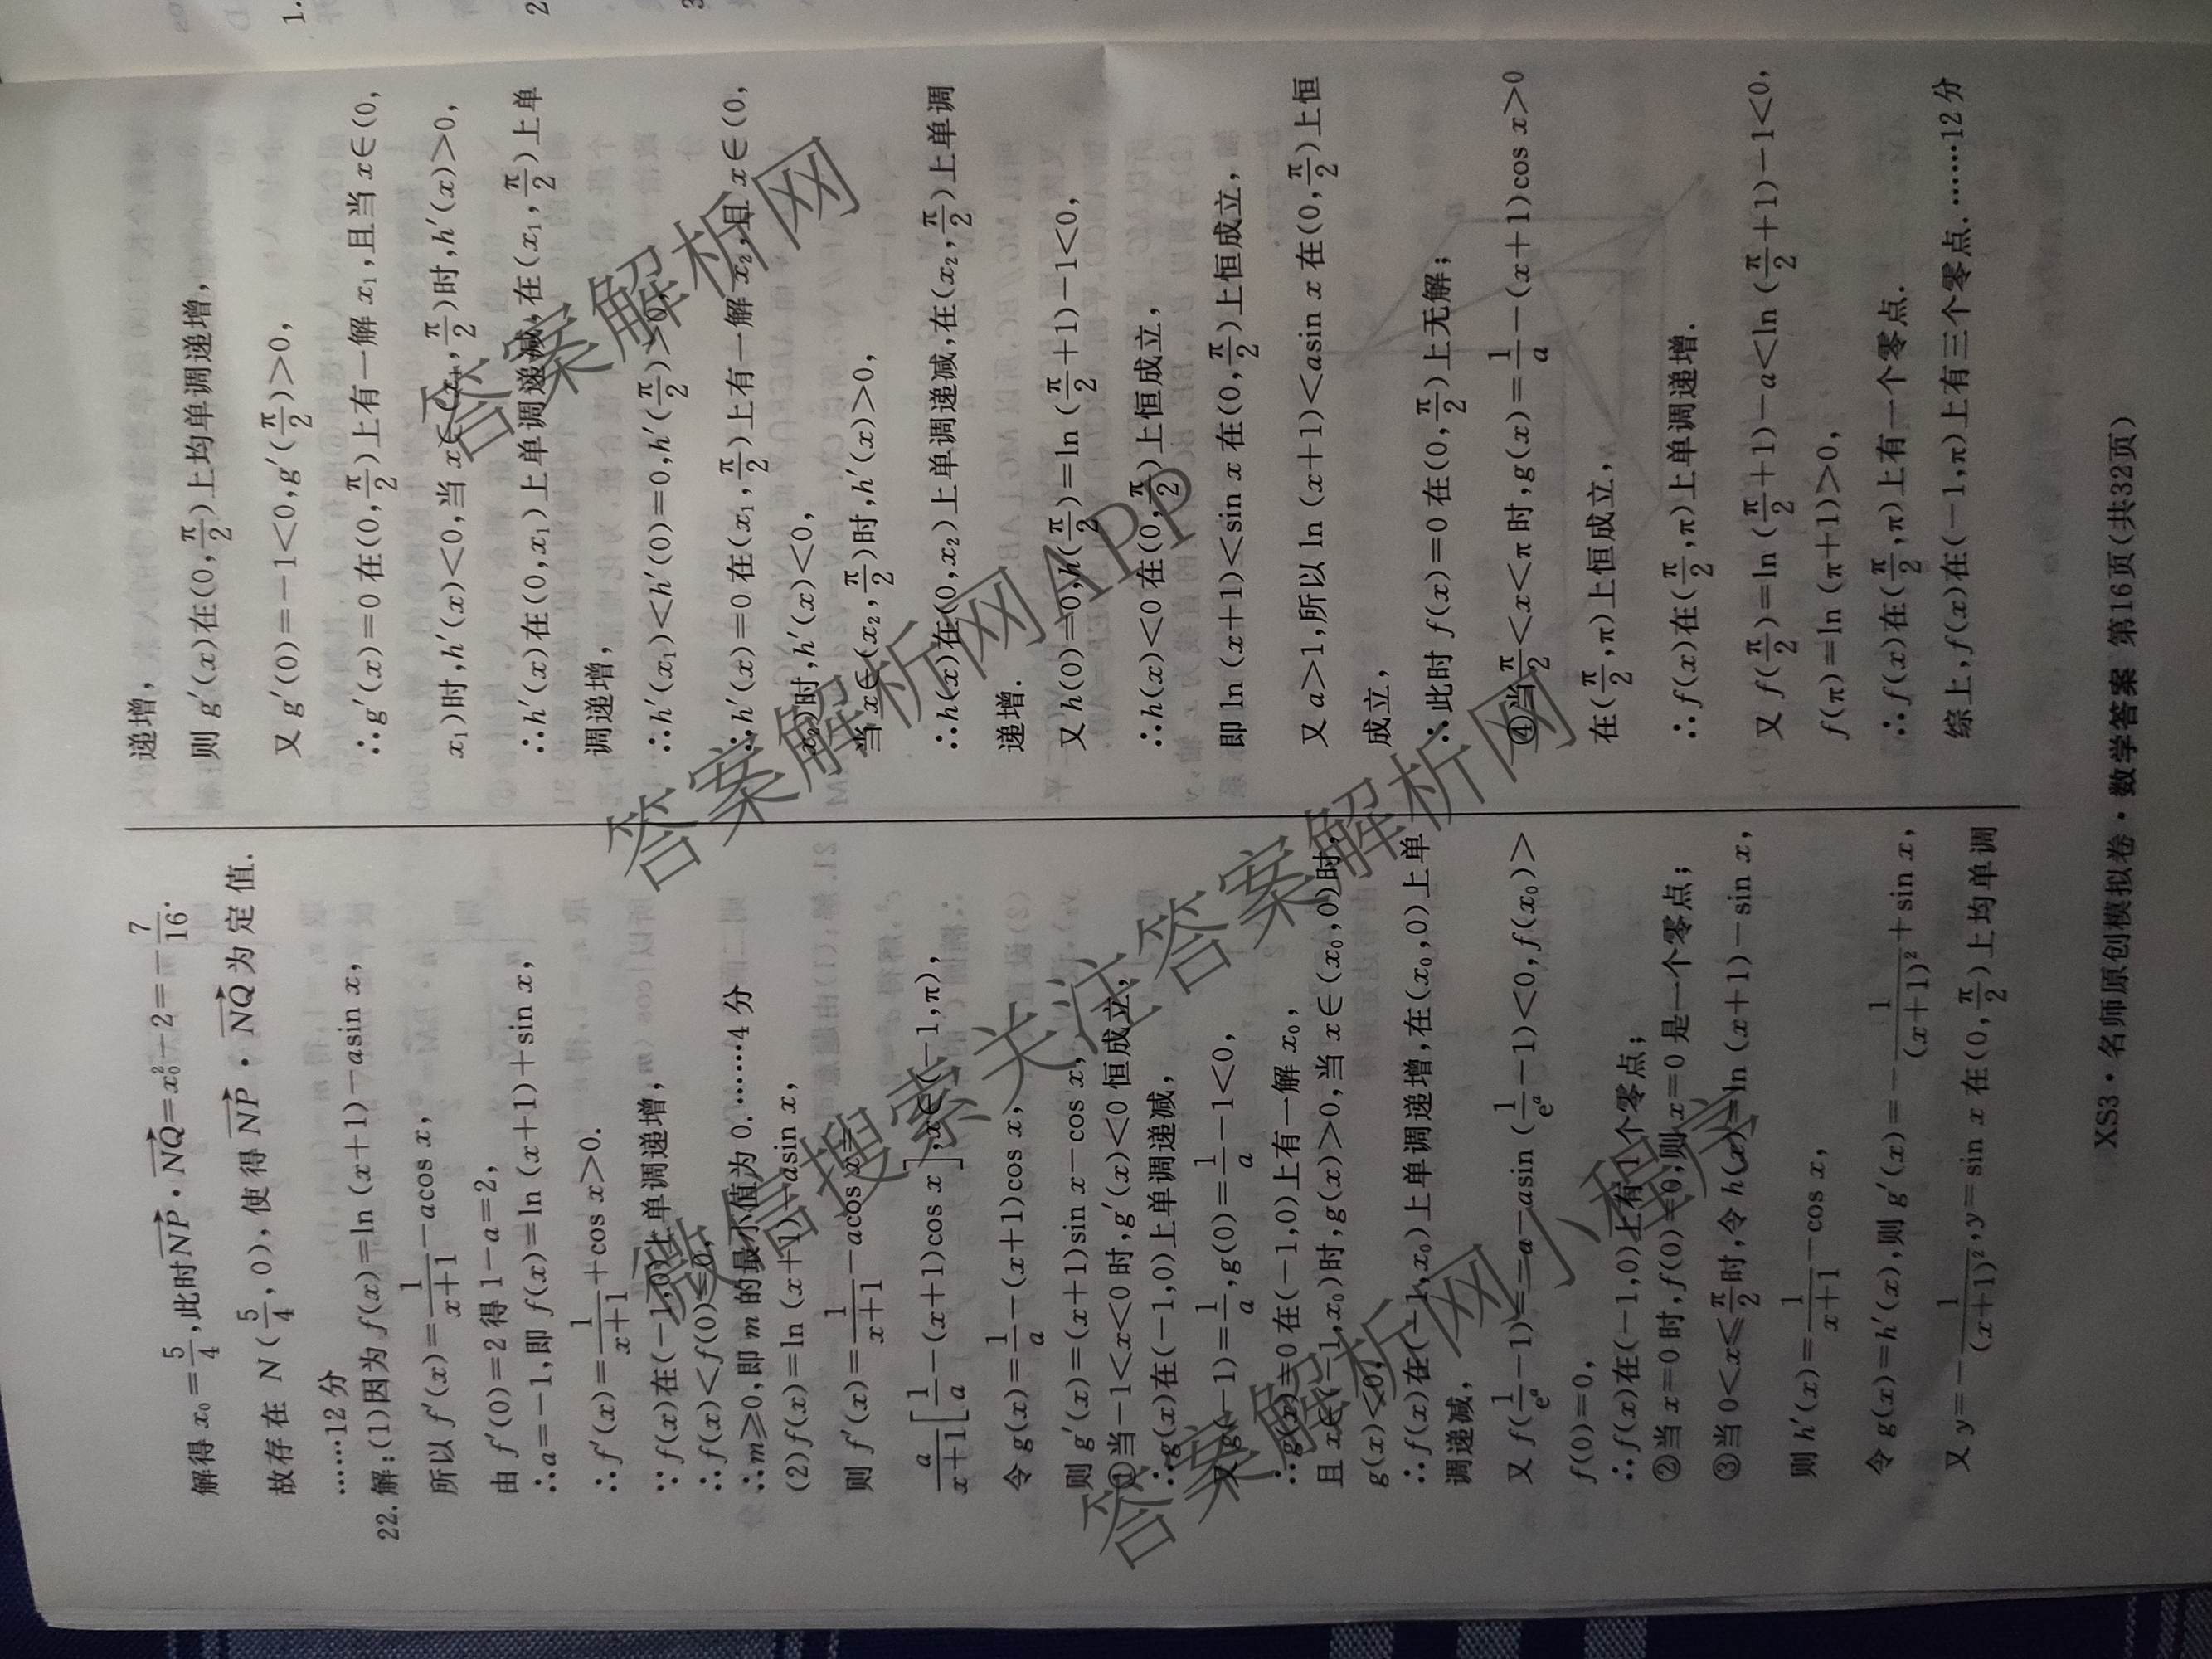 解得 x₀=5/4,此时NP·NQ=x₀²-2=-7/16.
故存在 N(5/4,0),使得 NP·NQ为定值.
……12分
22.解:(1)因为 f(x)=ln (x+1)-asin x,
所以 f′(x)=1/(x+1)-acos x,
由 f′(0)=2 得 1-a=2,
∴a=-1,即 f(x)=ln (x+1)+sin x,
∴f′(x)=1/(x+1)+cos x>0.
∴f(x)在(-1,0)上单调递增,
∴f(x)<f(0)=0,
∴m≥0,即 m 的最小值为 0.……4分
(2)f(x)=ln (x+1)-asin x,
则 f′(x)=1/(x+1)-acos x=
a/(x+1)[1/a-(x+1)cos x],x∈(-1,π),
令 g(x)=1/a-(x+1)cos x,
则 g′(x)=(x+1)sin x-cos x,
①当-1<x<0 时,g′(x)<0 恒成立,
∴g(x)在(-1,0)上单调递减,
又 g(-1)=1/a,g(0)=1/a-1<0,
∴g(x)=0 在(-1,0)上有一解 x₀,
且 x∈(-1,x₀)时,g(x)>0,当 x∈(x₀,0)时,
g(x)<0,
∴f(x)在(-1,x₀)上单调递增,在(x₀,0)上单
调递减,
又 f(1/eᵃ-1)=-a-asin (1/eᵃ-1)<0,f(x₀)>
f(0)=0,
∴f(x)在(-1,0)上有1个零点;
②当 x=0 时,f(0)=0,则 x=0 是一个零点;
③当 0<x≤π/2时,令 h(x)=ln (x+1)-sin x,
则 h′(x)=1/(x+1)-cos x,
令 g(x)=h′(x),则 g′(x)=-1/(x+1)²+sin x,
又 y=-1/(x+1)²,y=sin x 在(0,π/2)上均单调
递增,
则 g′(x)在(0,π/2)上均单调递增,
又 g′(0)=-1<0,g′(π/2)>0,
∴g′(x)=0 在(0,π/2)上有一解 x₁,且当 x∈(0,
x₁)时,h′(x)<0,当 x∈(x₁,π/2)时,h′(x)>0,
∴h′(x)在(0,x₁)上单调递减,在(x₁,π/2)上单
调递增,
∴h′(x₁)<h′(0)=0,h′(π/2)>0,
∴h′(x)=0 在(x₁,π/2)上有一解 x₂,且 x∈(0,
x₂)时,h′(x)<0,
当 x∈(x₂,π/2)时,h′(x)>0,
∴h(x)在(0,x₂)上单调递减,在(x₂,π/2)上单调
递增.
又 h(0)=0,h(π/2)=ln (π/2+1)-1<0,
∴h(x)<0 在(0,π/2)上恒成立,
即 ln (x+1)<sin x 在(0,π/2)上恒成立,
又 a>1,所以 ln (x+1)<asin x 在(0,π/2)上恒
成立,
∴此时 f(x)=0 在(0,π/2)上无解;
④当π/2<x<π 时,g(x)=1/a-(x+1)cos x>0
在(π/2,π)上恒成立,
∴f(x)在(π/2,π)上单调递增.
又 f(π/2)=ln (π/2+1)-a<ln (π/2+1)-1<0,
f(π)=ln (π+1)>0,
∴f(x)在(π/2,π)上有一个零点.
综上,f(x)在(-1,π)上有三个零点.……12分
XS3·名师原创模拟卷·数学答案 第16页(共32页)
1.
2
3
答案解析网
答案解析网APP
微信搜索关注答案解析网
答案解析网小程序